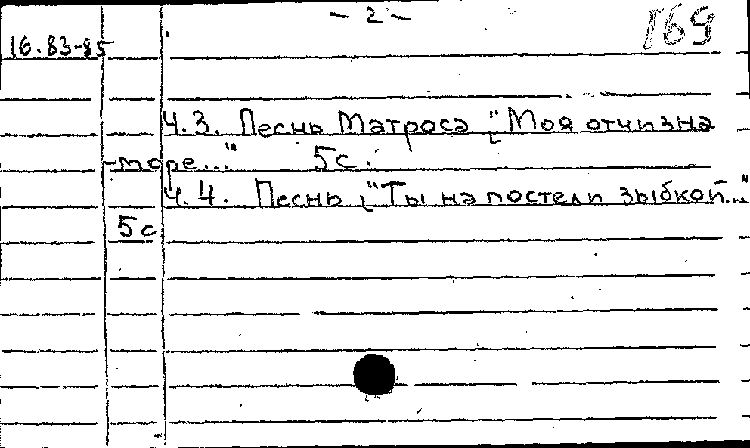 - 2 -
169
16.83-85
Ч.3. Песнь Матроса "Моя отчизна
-море..." 5с.
Ч.4. Песнь "Ты на постели зыбкой..."
5с